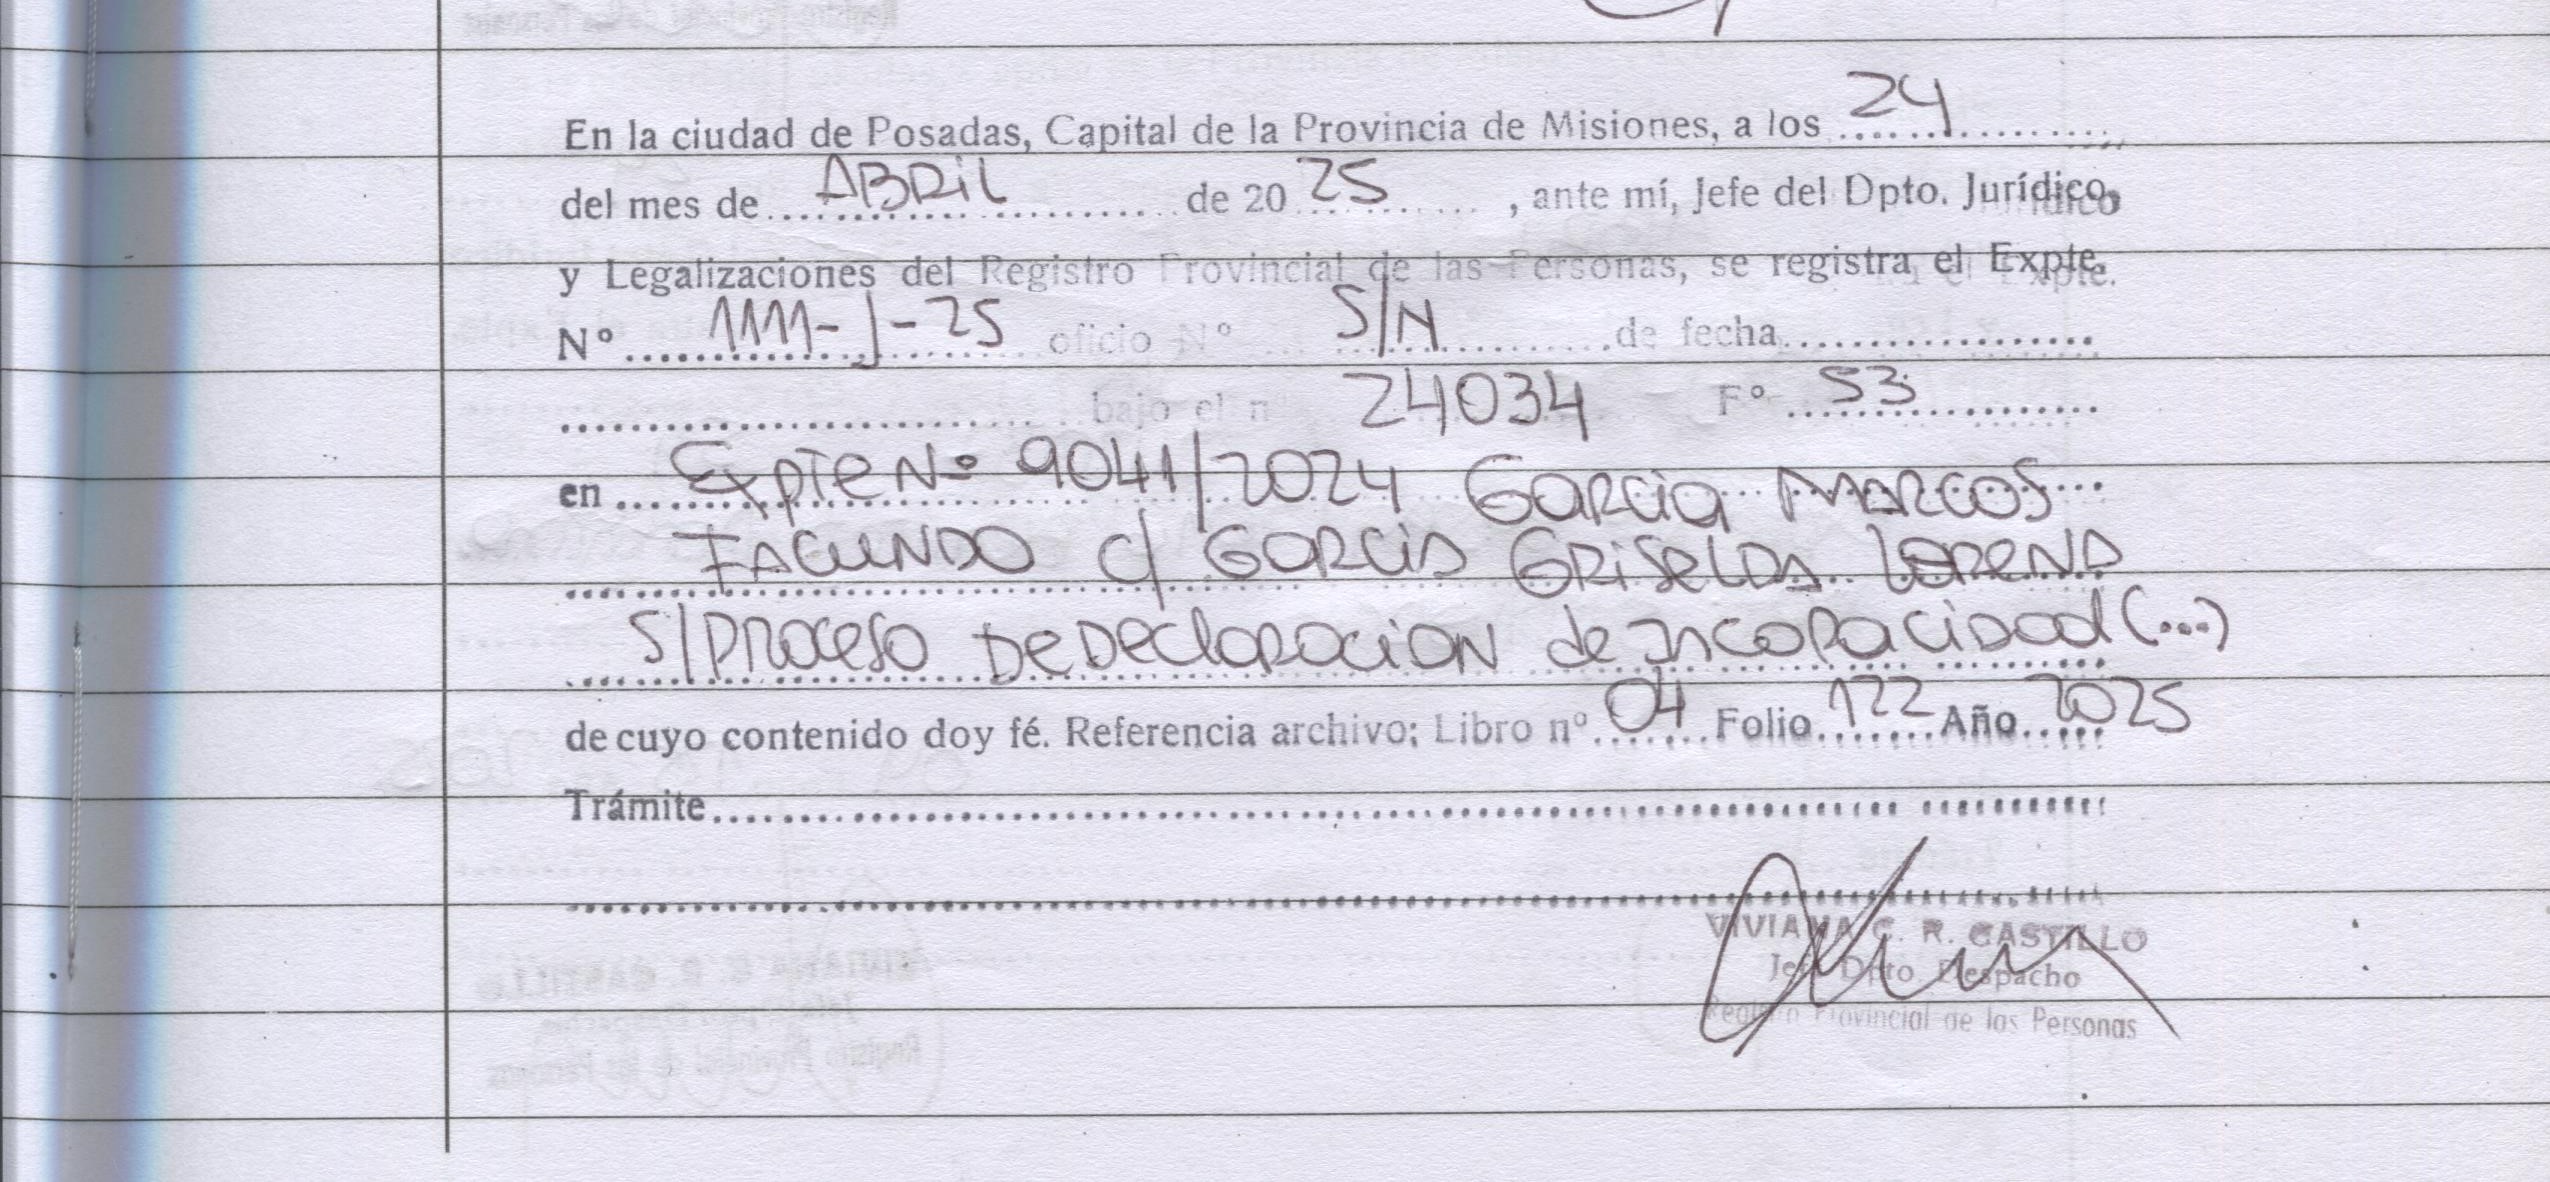 En la ciudad de Posadas, Capital de la Provincia de Misiones, a los 24
del mes de ABRIL de 20 25, ante mí, Jefe del Dpto. Jurídico,
y Legalizaciones del Registro Provincial de las Personas, se registra el Expte.
Nº 1111-J-25 oficio Nº S/N de fecha
bajo el nº 24034 Fº 53
en Expte Nº 9041/2024 Garcia Marcos
Facundo c/ Garcia Griselda Lorena
S/Proceso De Declaracion de Incapacidad (...)
de cuyo contenido doy fé. Referencia archivo: Libro nº 04 Folio 122 Año 2025
Trámite
VIVIANA C. R. CASTILLO
Jefe Dpto. Despacho
Registro Provincial de las Personas